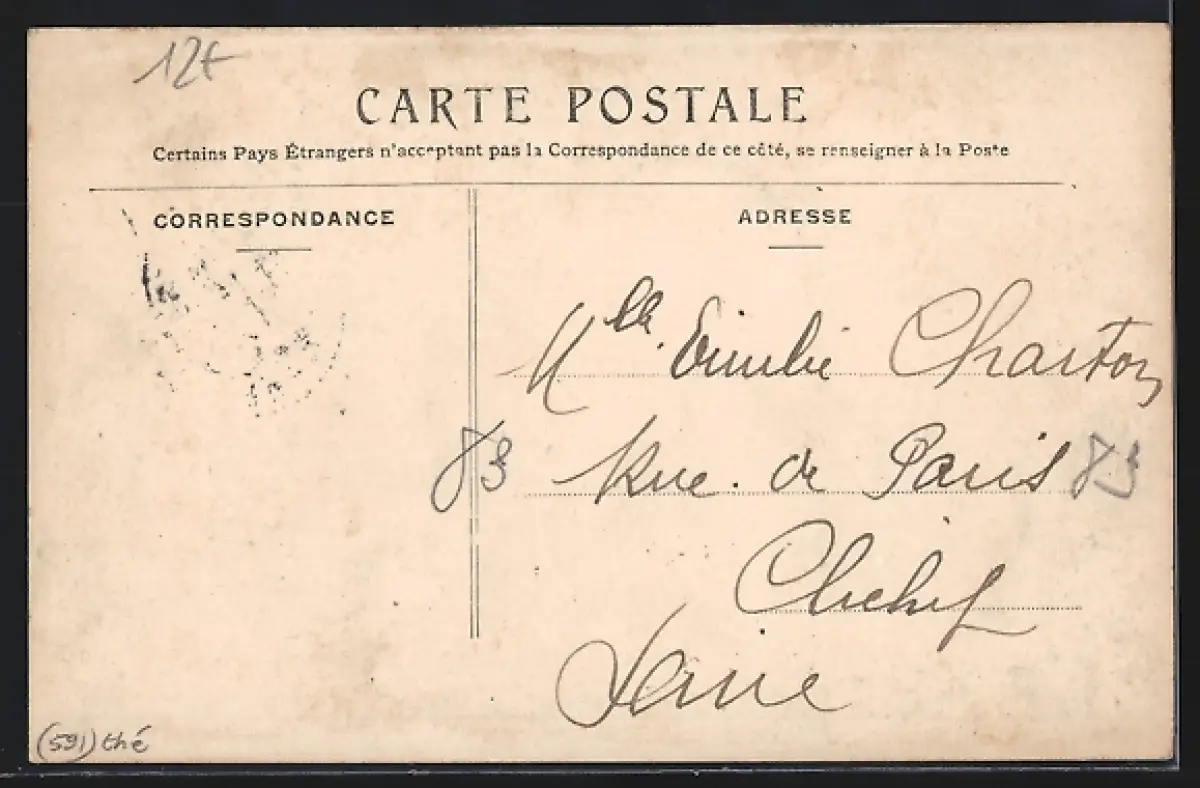 12€
CARTE POSTALE
Certains Pays Étrangers n'acceptant pas la Correspondance de ce côté, se renseigner à la Poste
CORRESPONDANCE
ADRESSE
Mlle. Emilie Charton
83 Rue de Paris 83
Clichy
Seine
(591) thé